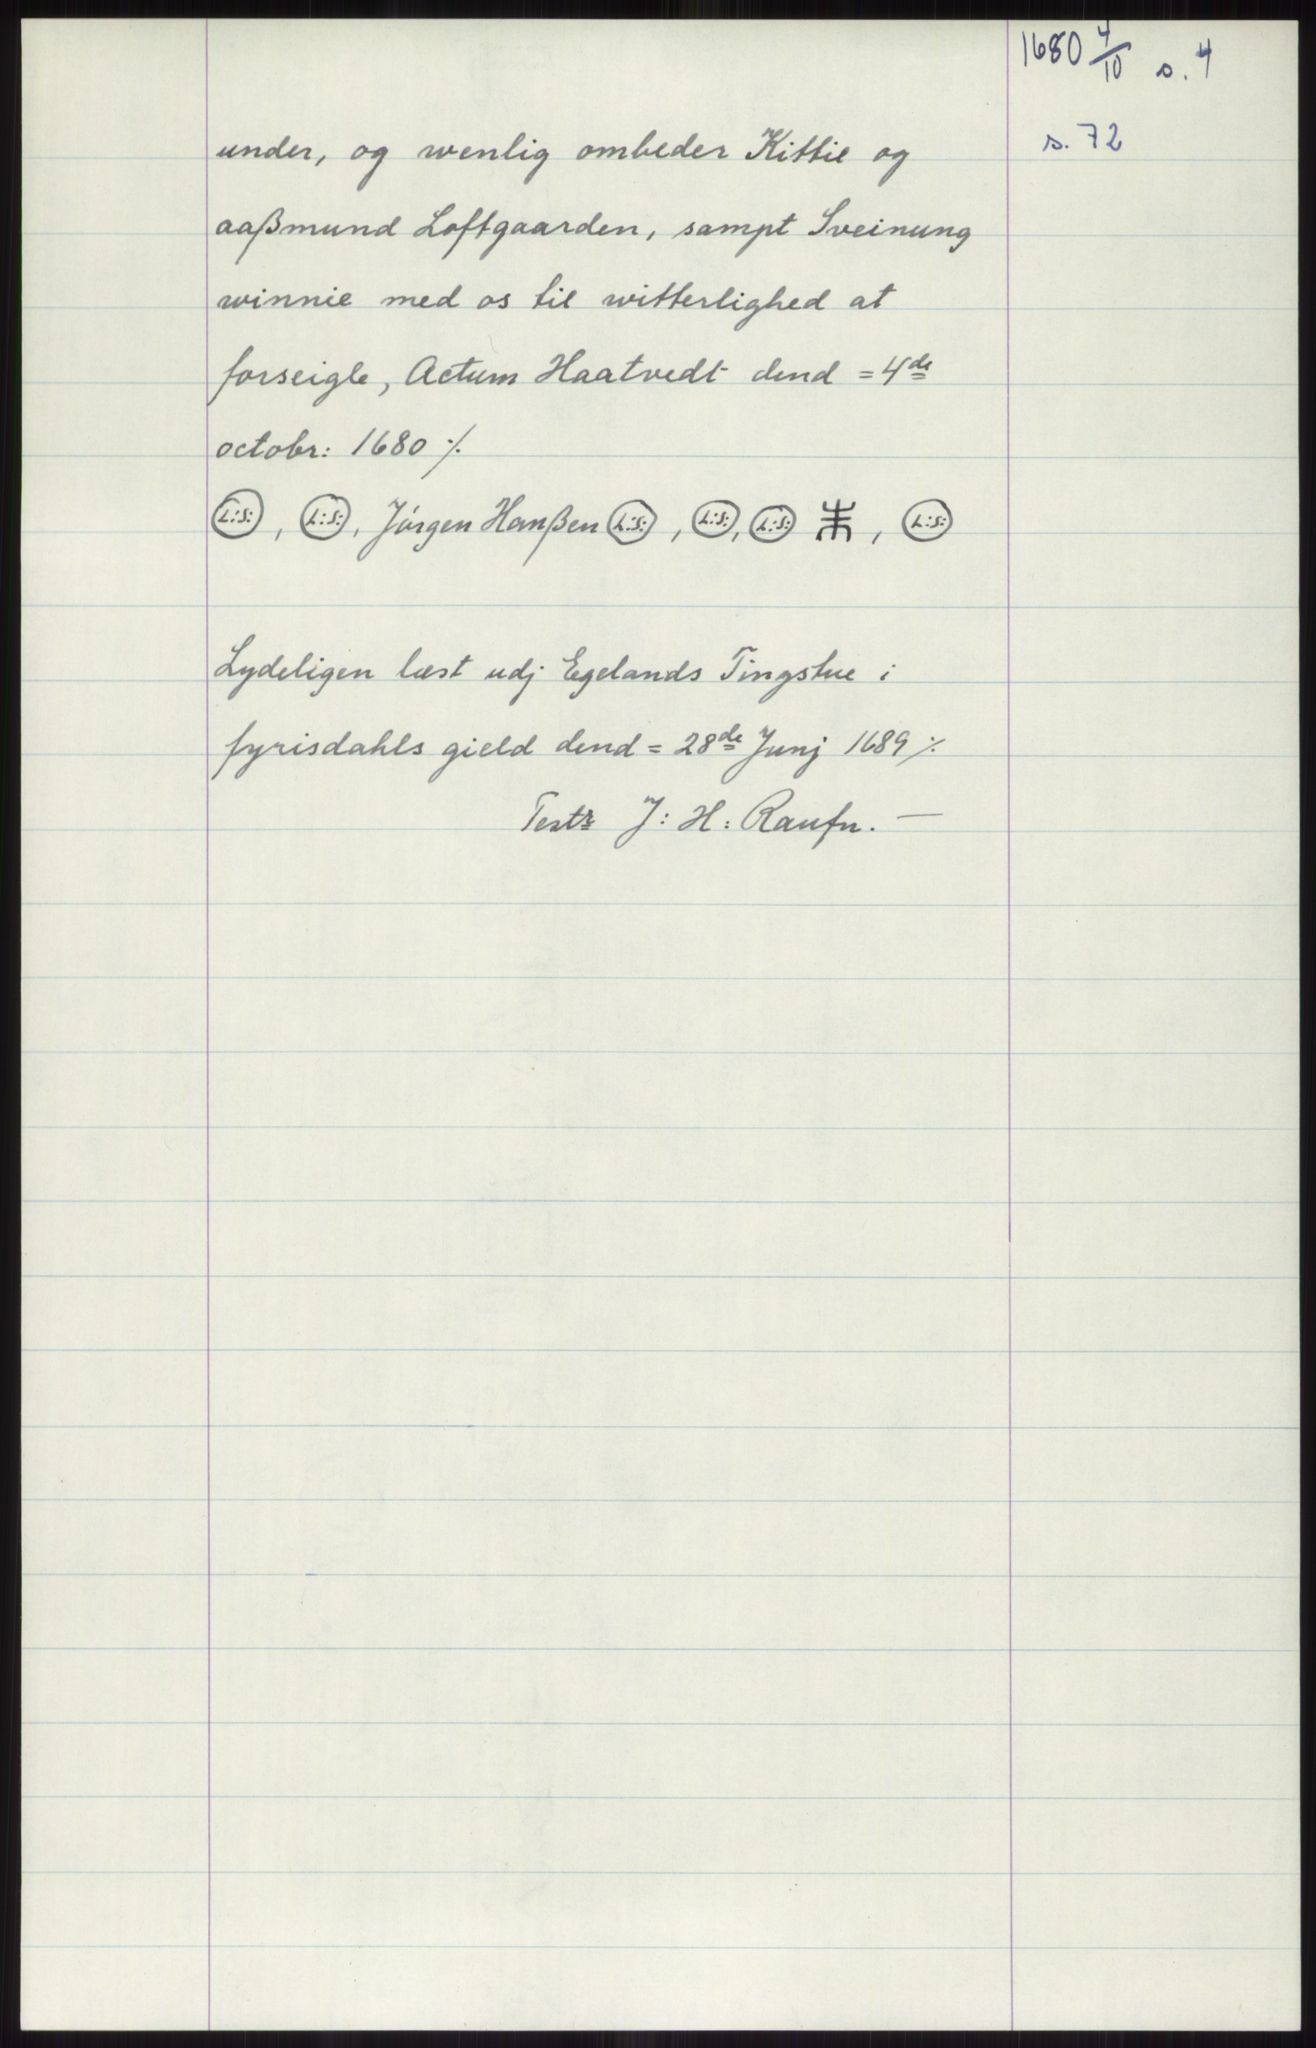 1680 4/10 s. 4
s. 72
under, og wenlig ombeder Kittil og
aaßmund Loftgaarden, sampt Sveinung
winnie med os til witterlighed at
forseigle, Actum Haatvedt dend = 4de
octobr: 1680 ⁒
L:S:, L:S:, Jórgen Hanßen L:S:, L:S:, L:S: , L:S:
Lydeligen læst udj Egelands Tingstue i
fyrisdahls gield dend = 28de Junj 1689 ⁒
J: H: Raufn. —